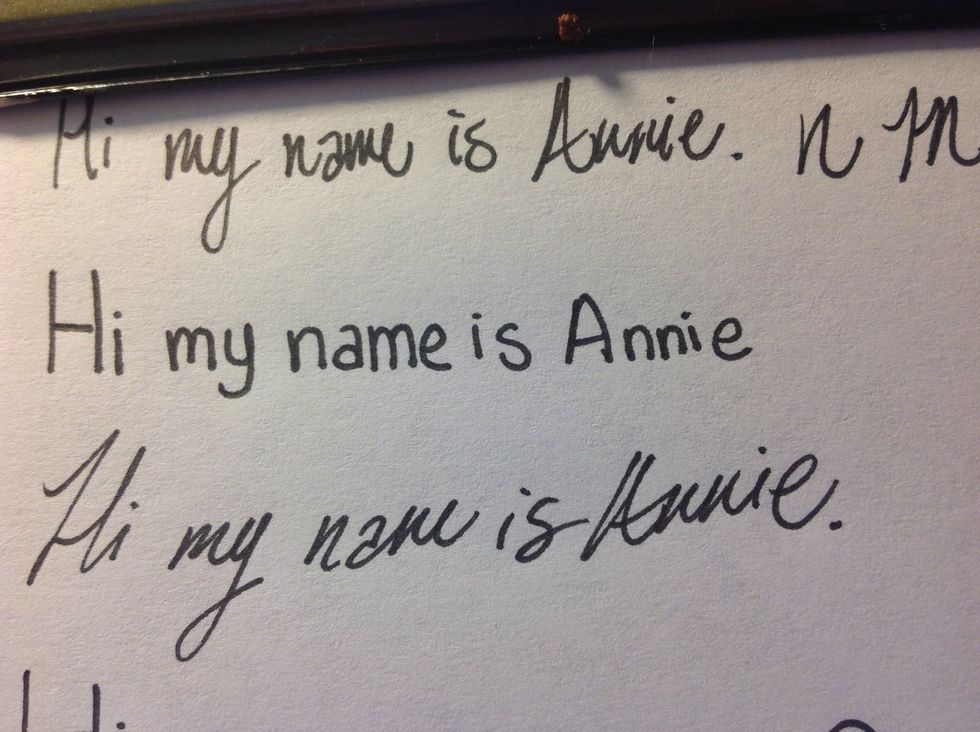 Hi my name is Annie. n M
Hi my name is Annie
Hi my name is Annie.
Hi